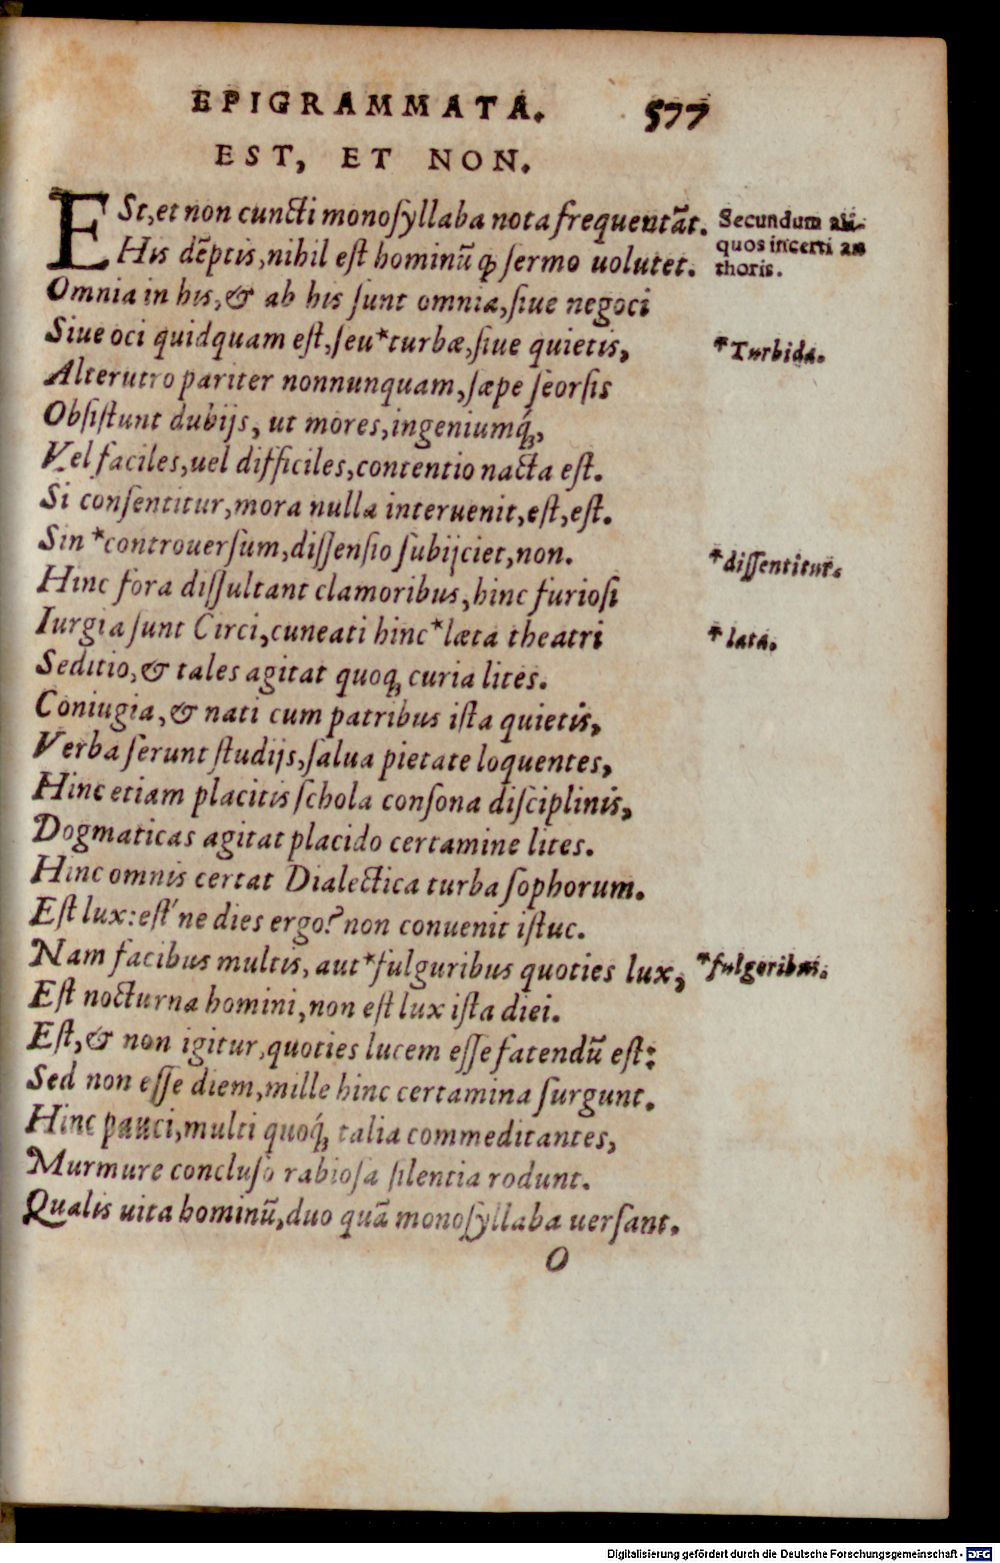 EPIGRAMMATA. 577
EST, ET NON.
ESt, et non cuncti monoſyllaba nota frequentāt.
His dēptis, nihil eſt hominū ꝙ ſermo uolutet.
Secundum ali-
quos incerti au
thoris.
Omnia in his, & ab his ſunt omnia, ſiue negoci
Siue oci quidquam eſt, ſeu *turbæ, ſiue quietis,
*Turbida.
Alterutro pariter nonnunquam, ſæpe ſeorſis
Obſiſtunt dubijs, ut mores, ingeniumq́;,
Vel faciles, uel difficiles, contentio nacta eſt.
Si conſentitur, mora nulla interuenit, eſt, eſt.
Sin *controuerſum, diſſenſio ſubijciet, non.
*diſſentitur.
Hinc fora diſſultant clamoribus, hinc furioſi
Iurgia ſunt Circi, cuneati hinc *læta theatri
*lata.
Seditio, & tales agitat quoq; curia lites.
Coniugia, & nati cum patribus iſta quietis,
Verba ſerunt ſtudijs, ſalua pietate loquentes,
Hinc etiam placitis ſchola conſona diſciplinis,
Dogmaticas agitat placido certamine lites.
Hinc omnis certat Dialectica turba ſophorum.
Eſt lux: eſt'ne dies ergo? non conuenit iſtuc.
Nam facibus multis, aut *fulguribus quoties lux,
*fulgoribus.
Eſt nocturna homini, non eſt lux iſta diei.
Eſt, & non igitur, quoties lucem eſſe fatendū eſt:
Sed non eſſe diem, mille hinc certamina ſurgunt.
Hinc pauci, multi quoq́; talia commeditantes,
Murmure concluſo rabioſa ſilentia rodunt.
Qualis uita hominū, duo quā monoſyllaba uerſant.
O
Digitalisierung gefördert durch die Deutsche Forschungsgemeinschaft - DFG